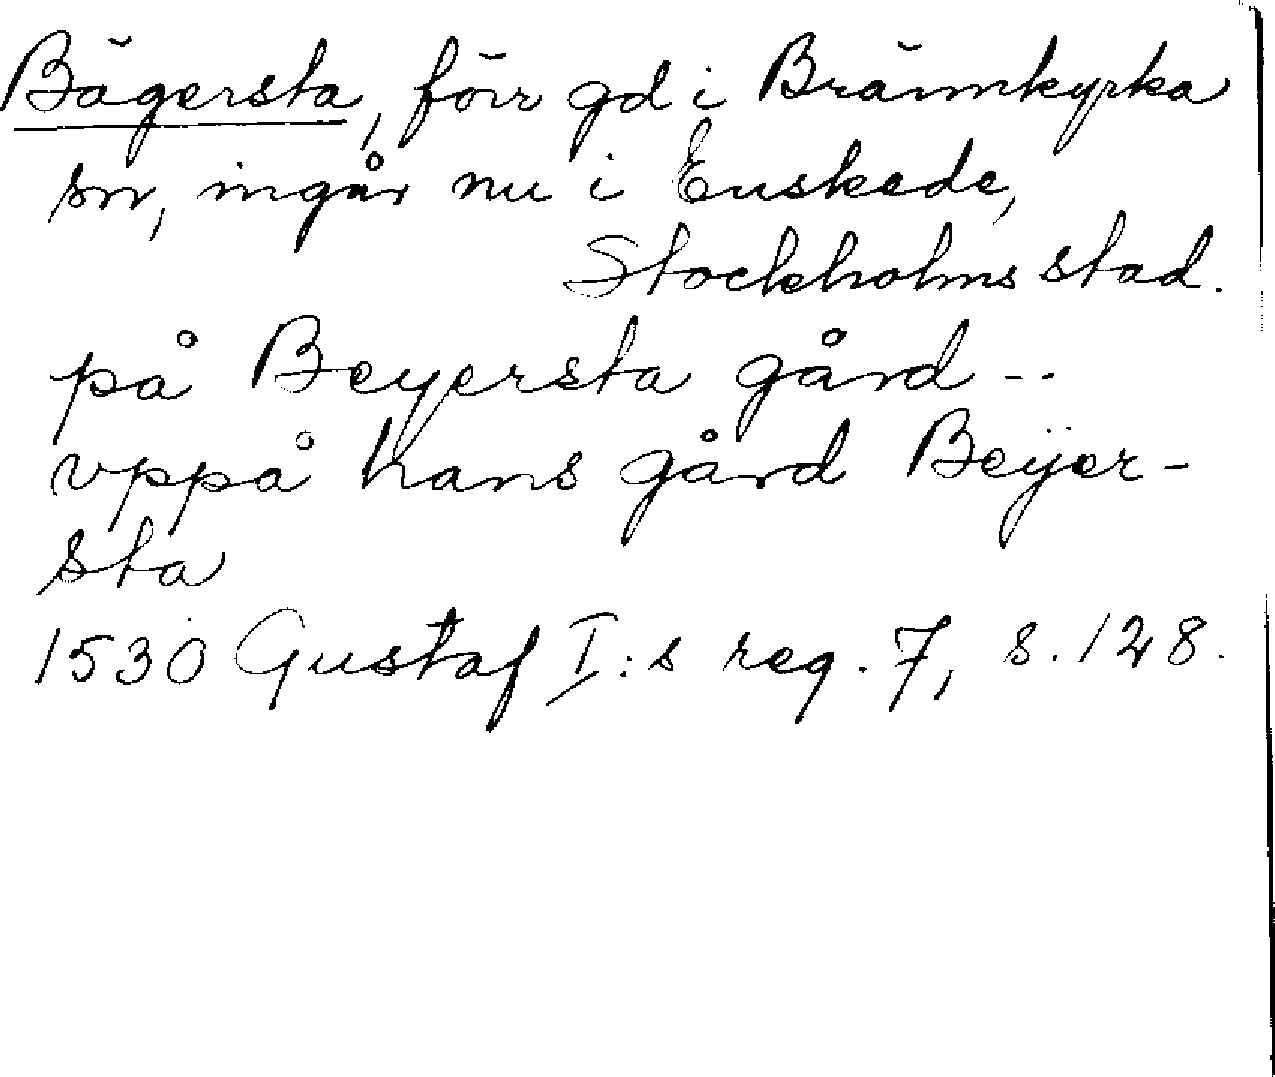 Bägersta, förr gd i Brännkyrka
sn, ingår nu i Enskede,
Stockholms stad.
på Beyersta gård --
vppå hans gård Beÿer-
sta
1530 Gustaf I:s reg. 7, s. 128.